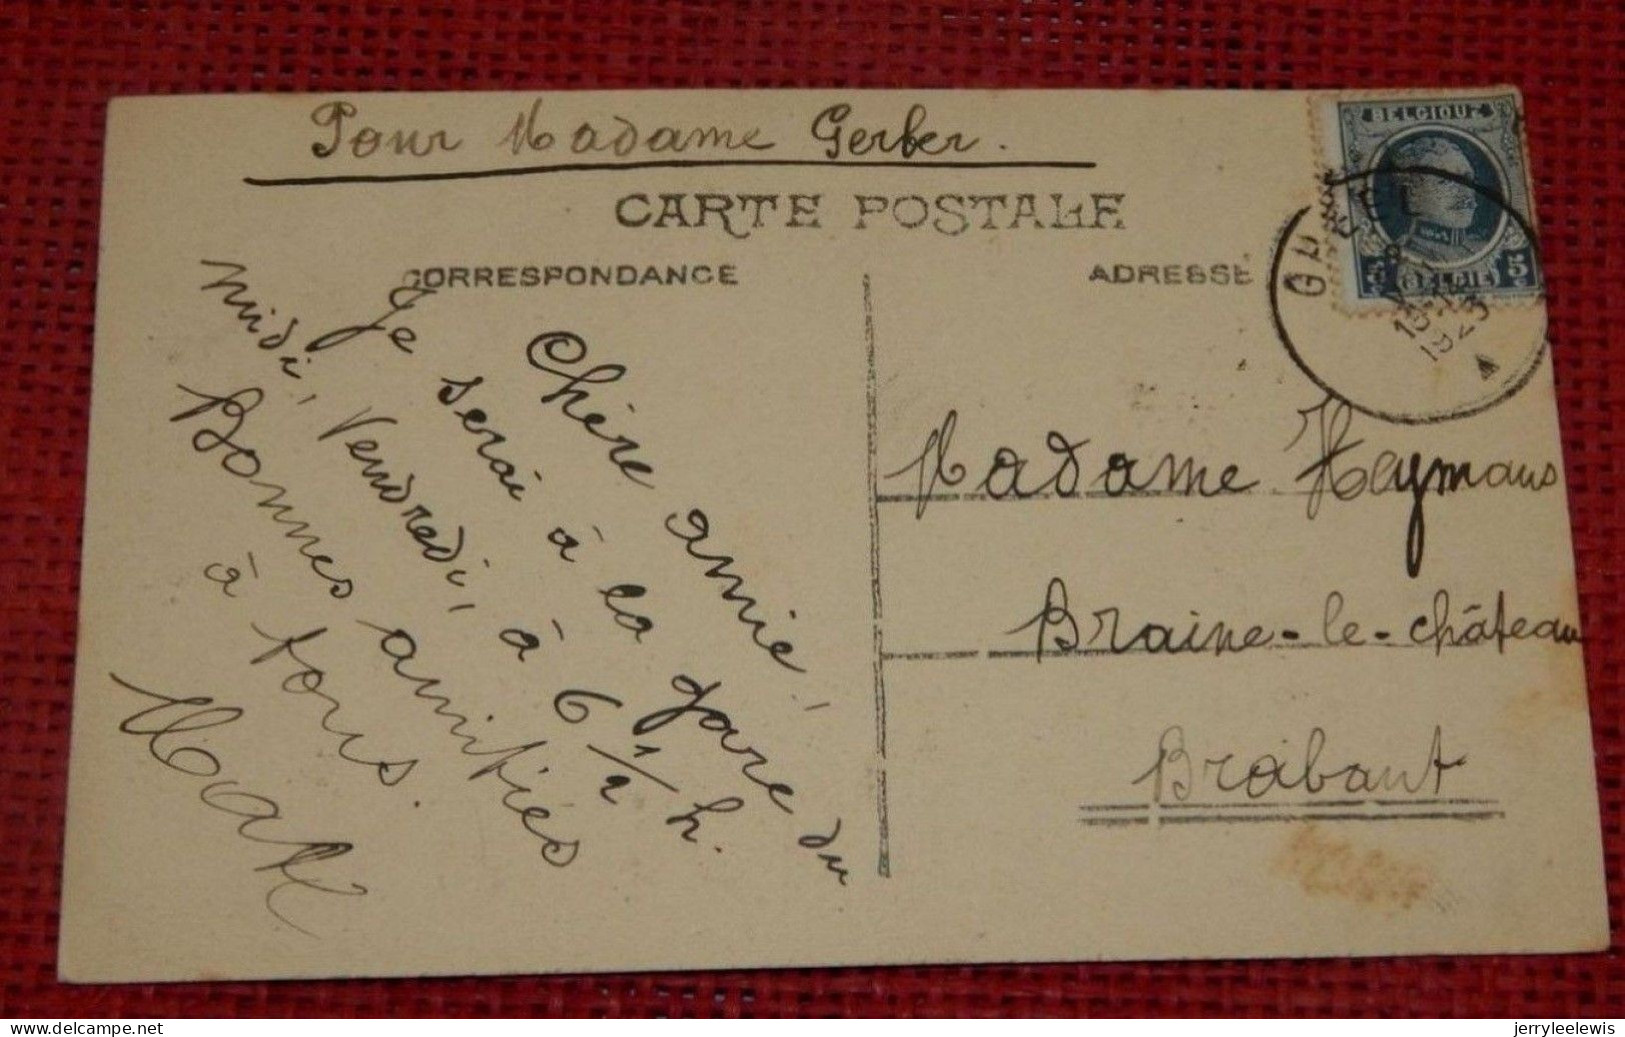 Pour Madame Gerber.
CARTE POSTALE
CORRESPONDANCE
ADRESSE
BELGIQUE
5 BELGIE 5
1923
Chère amie,
Je serai à la gare du
midi, Vendredi, à 6 1/2 h.
Bonnes amitiés
à tous.
Madame Heymans
Braine-le-château
Brabant
delcampe.net
jerryleelewis